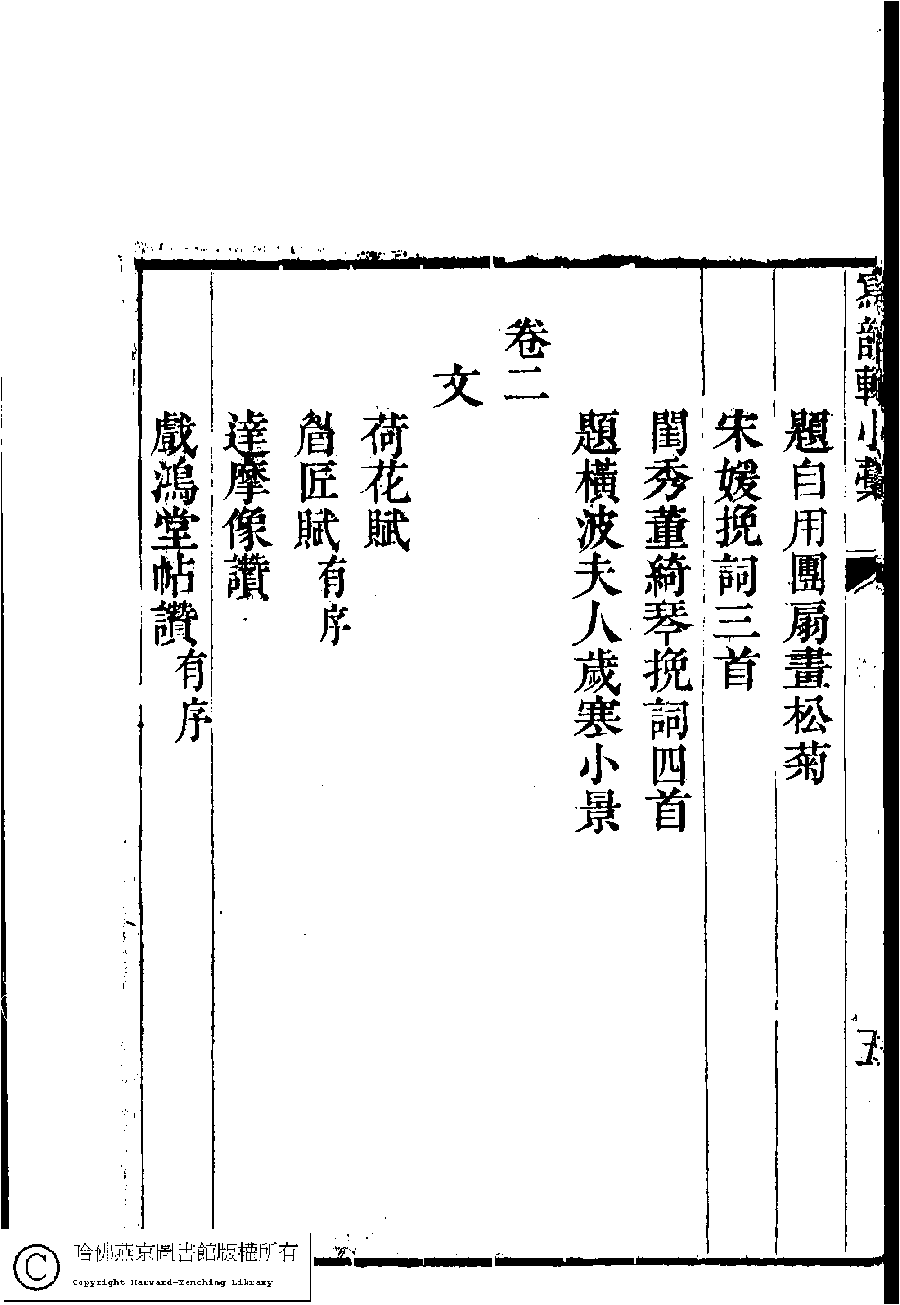 寫韵軒小藁
題自用團扇畫松菊
宋媛挽詞三首
閨秀董綺琴挽詞四首
題橫波夫人歲寒小景
卷二
文
荷花賦
匠賦有序
達摩像讚
戲鴻堂帖讚有序
五
哈佛燕京圖書館版權所有
Copyright Harvard-Yenching Library